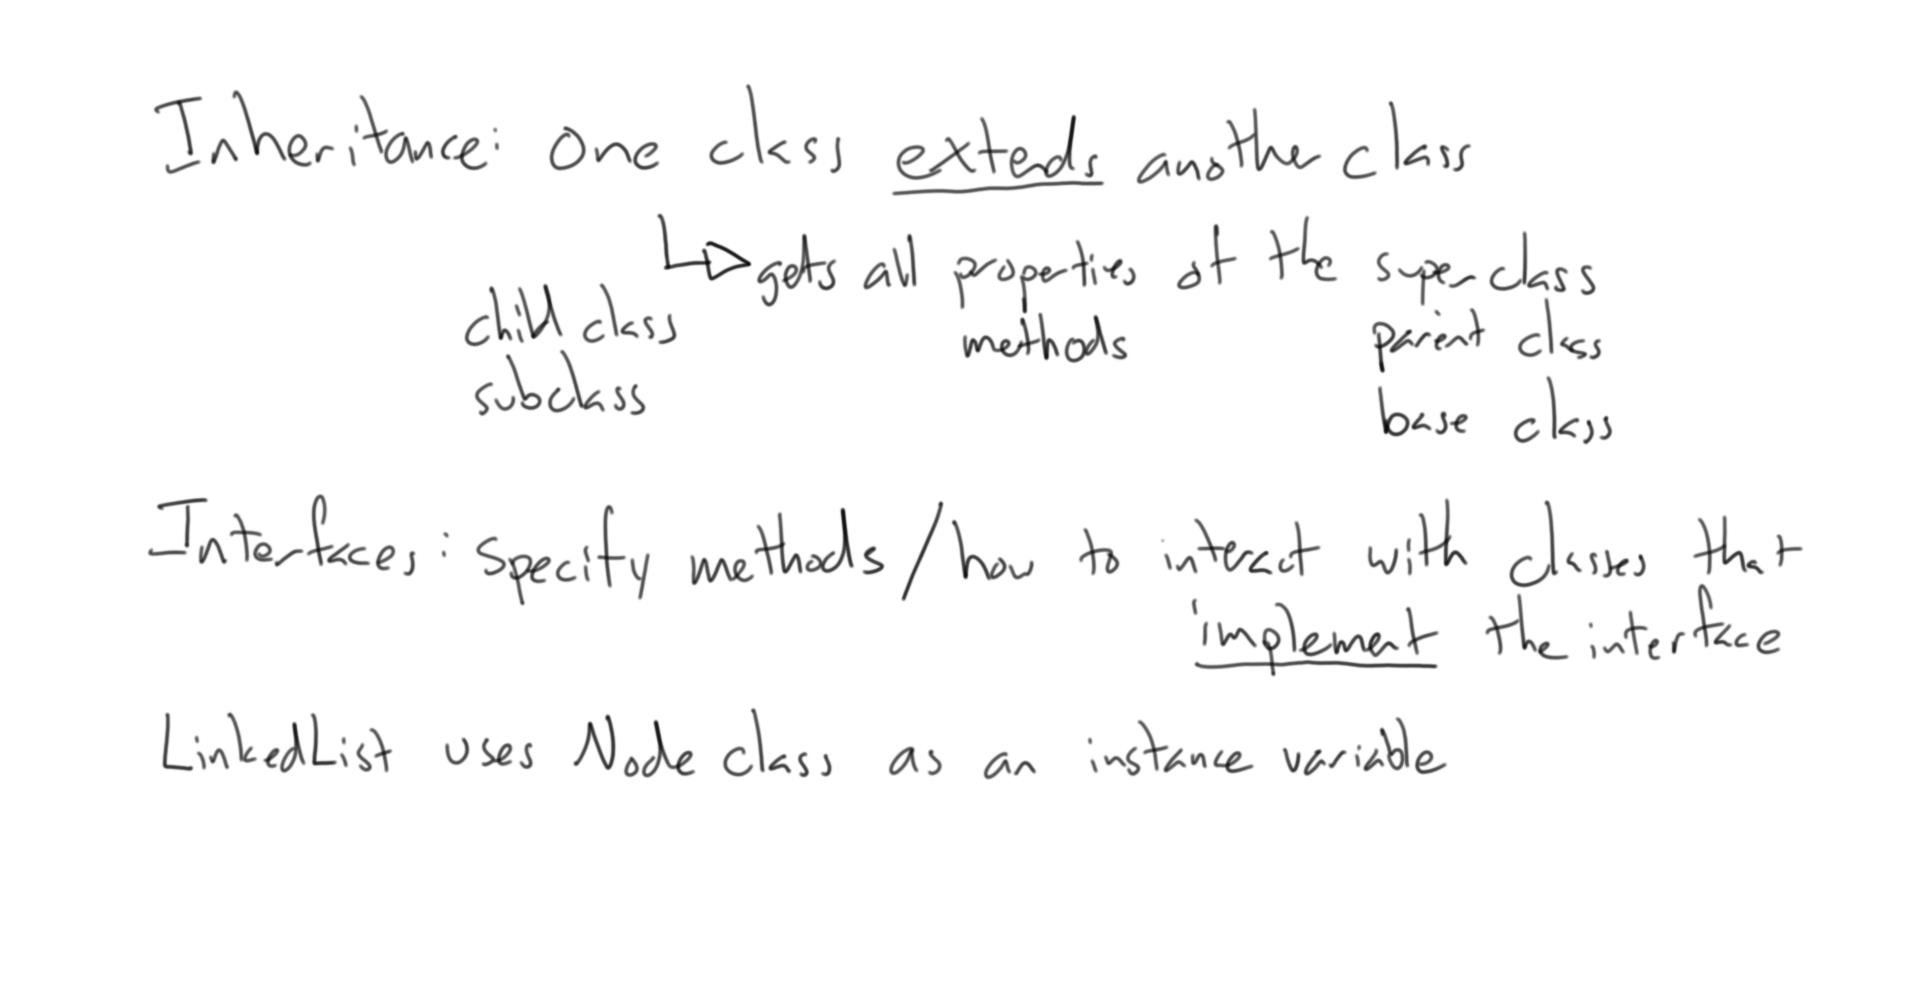 Inheritance: One class extends another class
gets all properties of the superclass
child class methods parent class
subclass base class
Interfaces: Specify methods/how to interact with classes that
implement the interface
LinkedList uses Node class as an instance variable